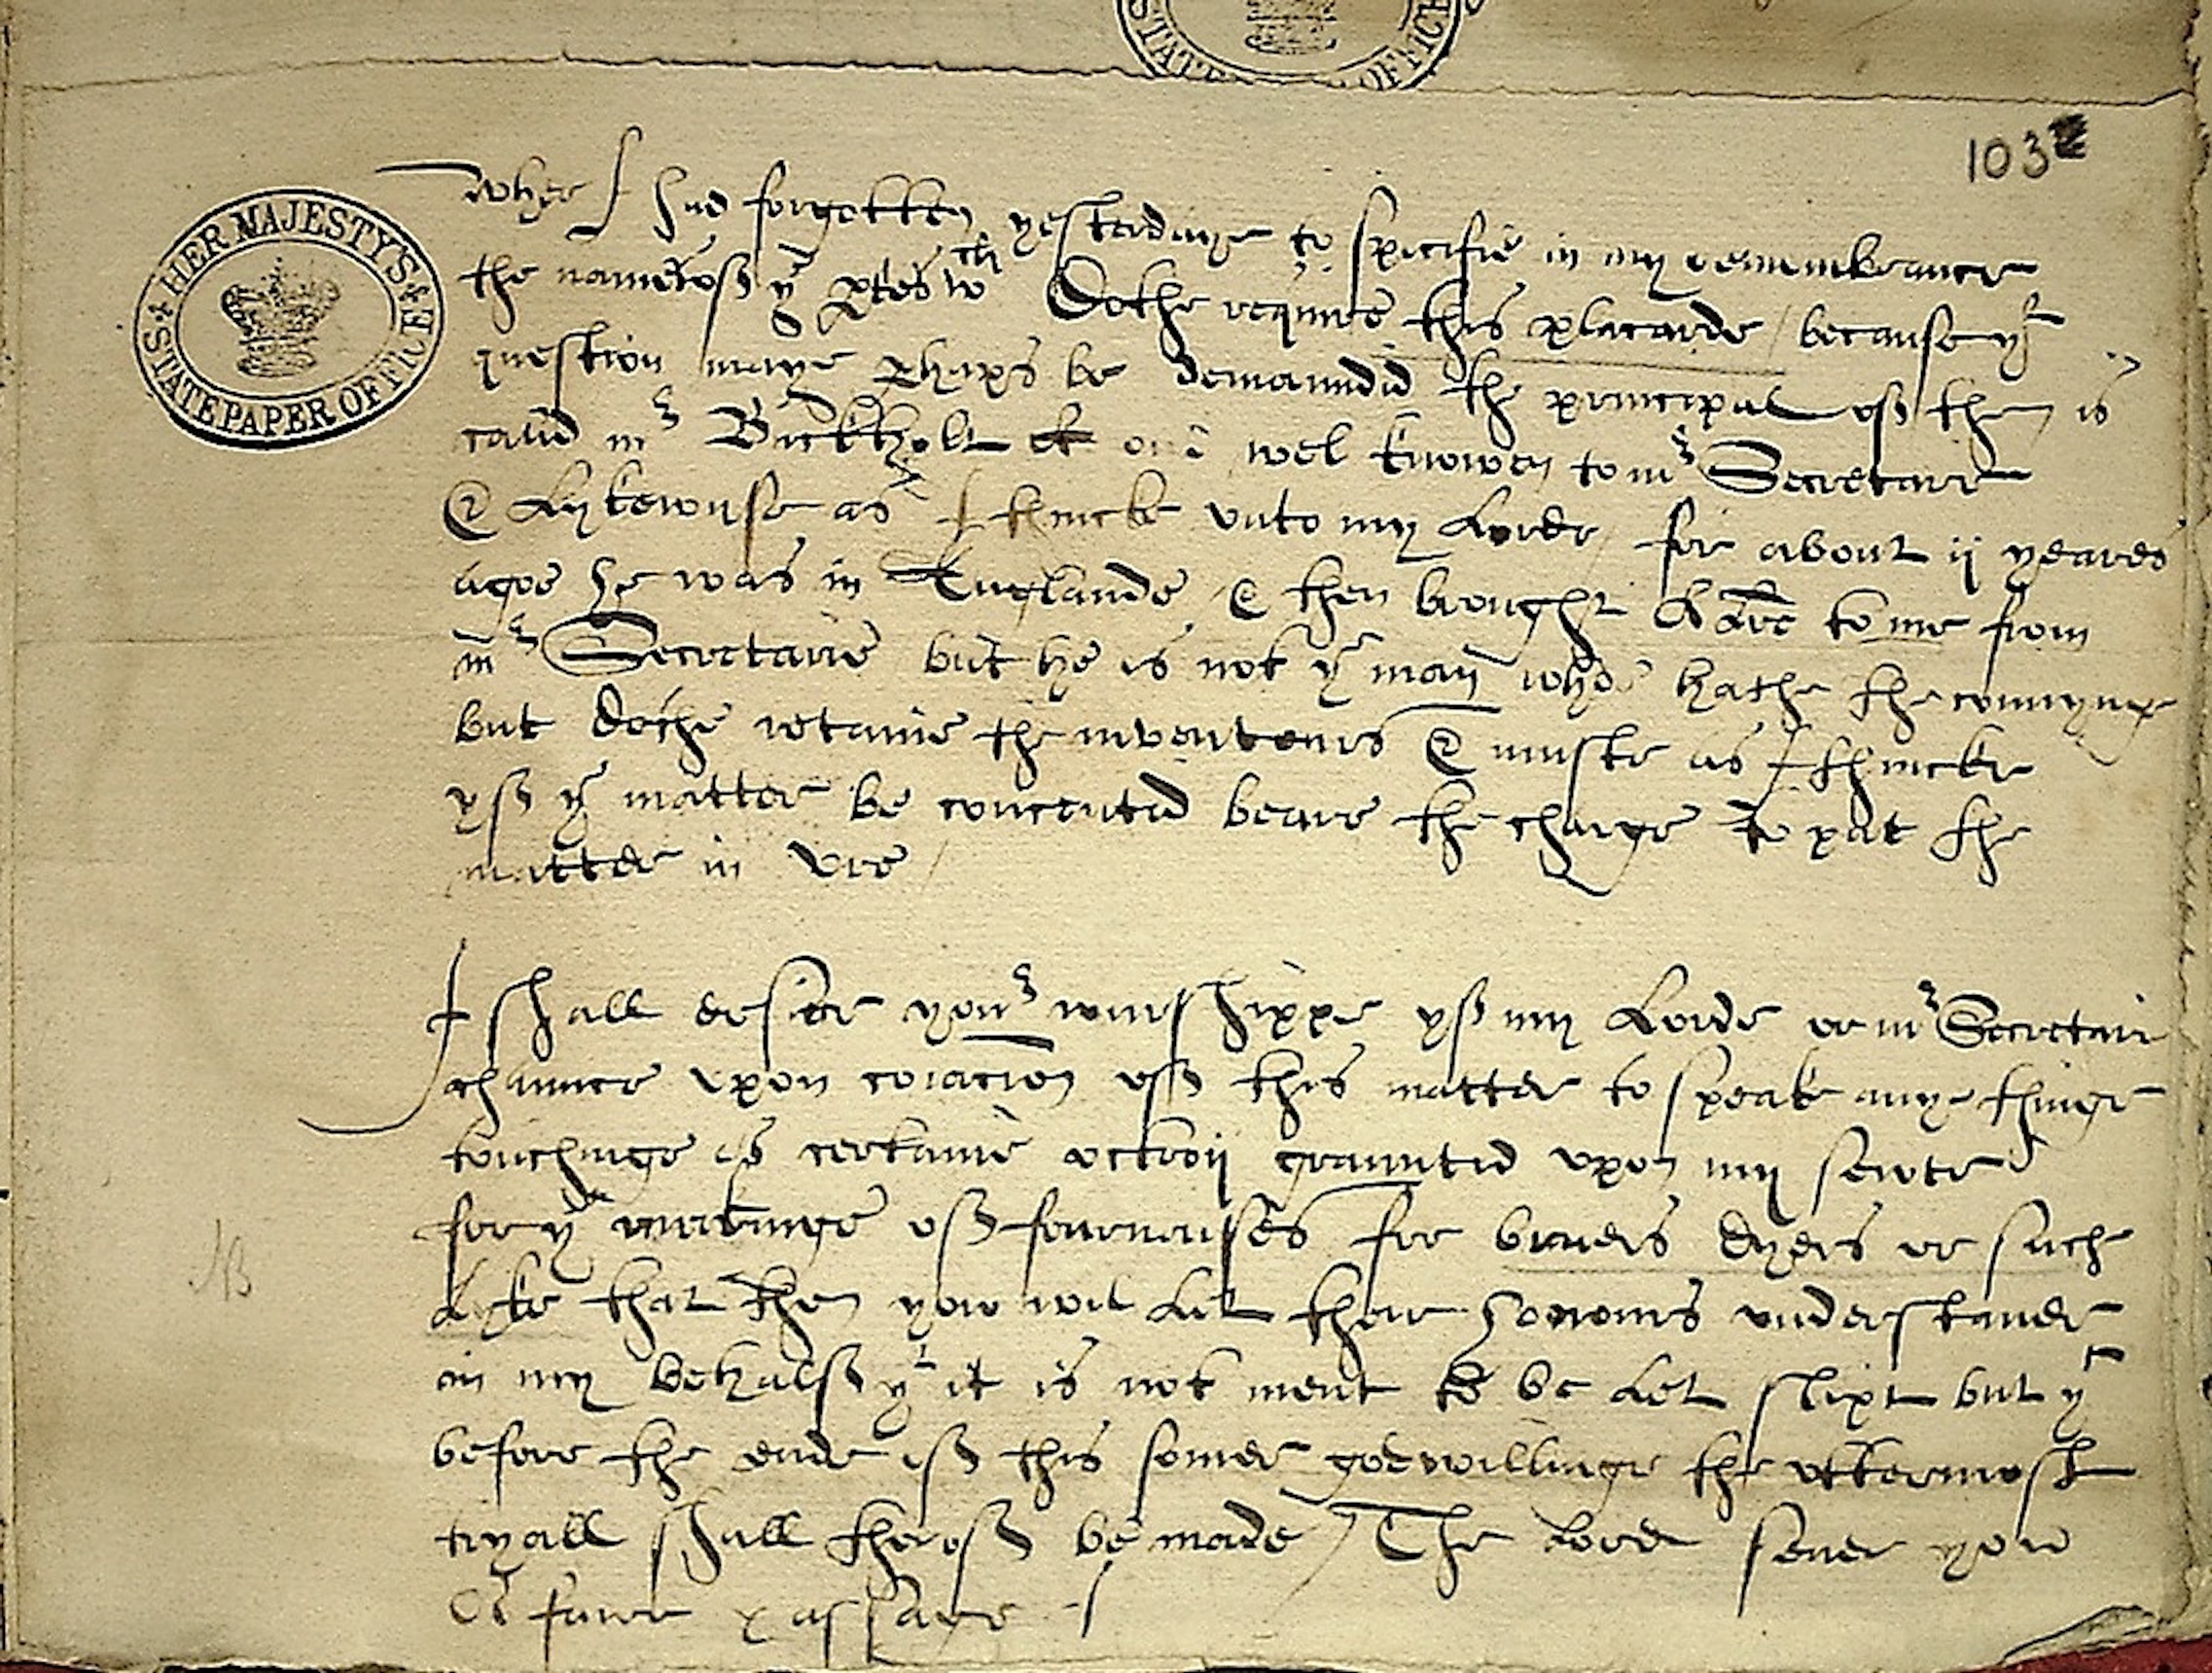 STATE PAPER OFFICE
103
HER MAJESTY'S STATE PAPER OFFICE
wher I had forgotten yesterdaye to specifie in my remembrance
the names off ye ptes wch Dothe require this placarde / because yt
question maye phaps be demaundid the principal off them is
callid mr Buckholt one wel knowen to mr Secretarie
& Lykewyse as I thincke vnto my Lorde / for about ij yeares
agoe he was in Englande, & then brought a lre to me from
mr Secretarie but he is not ye man who hathe the connynge
but dothe retaine the inventours & muste as I thincke
yff ye matter be concentid beare the charge to put the
matter in vre /
I shall desier your wurshippe yff my Lorde or mr Secretari
chaunce vpon coiacion off this matter to speak anye thinge
touchinge certaine octroij grauntid vpon my sewte
for ye makinge off fournayses for bruers dyers or such
Lyke that then yow wil Let their honours vnderstande
in my behalff yt it is not ment to be Let slipt but yt
before the ende off this somer godwillinge the vttermost
tryall shall theroff be made / The Lord sende yow
A faire passage /